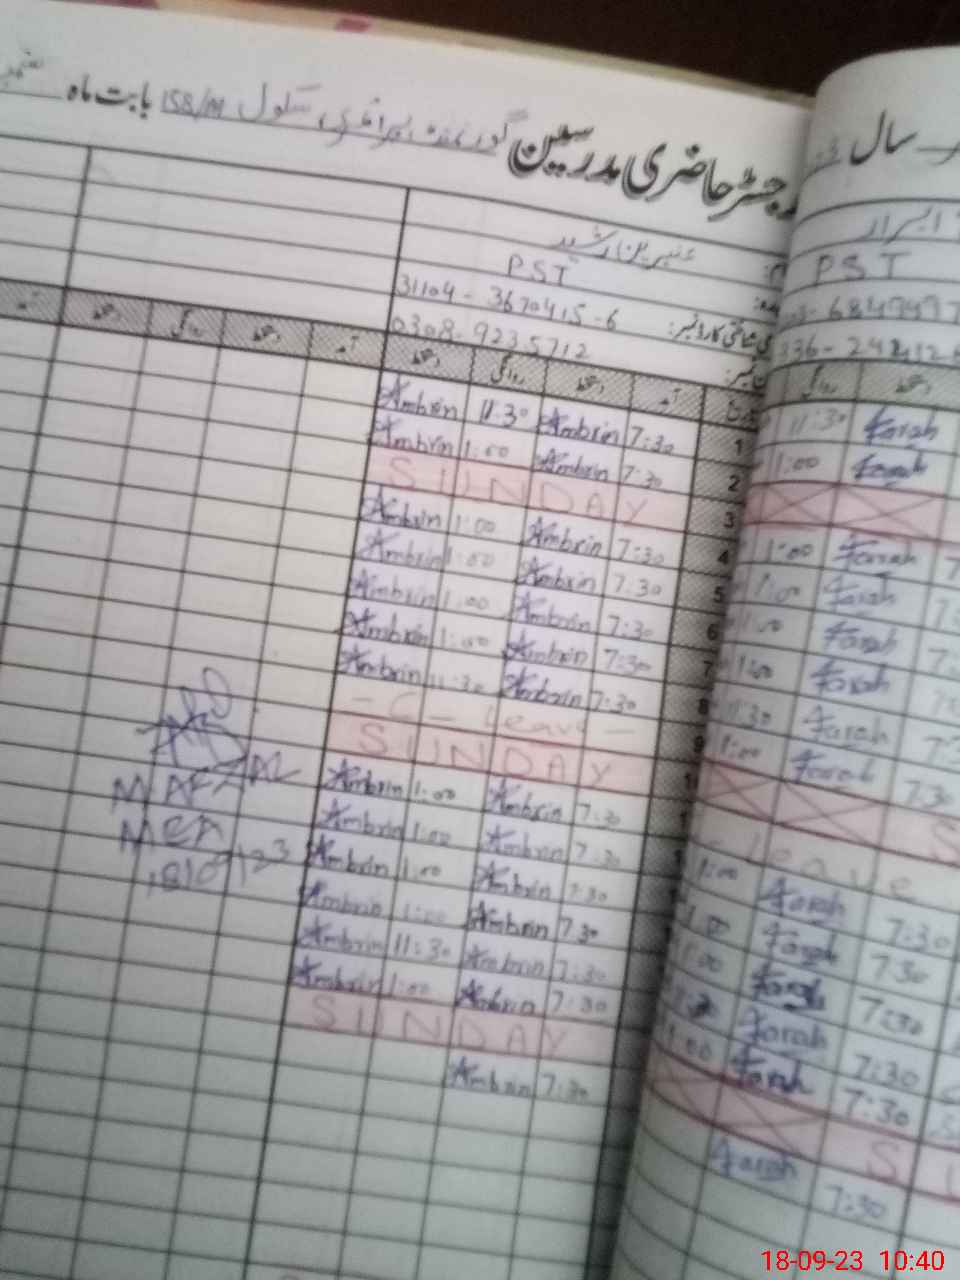 رجسٹر حاضری مدرسین گورنمنٹ پرائمری سکول 158/M بابت ماہ ستمبر
سال
عنبرین ارشد
PST
31104-3670415-6
0308-9235712
آمد دستخط روانگی دستخط
1 7:30 Ambrin 11:30 Ambrin
2 7:30 Ambrin 1:00 Ambrin
3 SUNDAY
4 7:30 Ambrin 1:00 Ambrin
5 7:30 Ambrin 1:00 Ambrin
6 7:30 Ambrin 1:00 Ambrin
7 7:30 Ambrin 1:00 Ambrin
8 7:30 Ambrin 11:30 Ambrin
9 - C - Leave -
SUNDAY
7:30 Ambrin 1:00 Ambrin
7:30 Ambrin 1:00 Ambrin
7:30 Ambrin 1:00 Ambrin
7:30 Ambrin 1:00 Ambrin
7:30 Ambrin 11:30 Ambrin
7:30 Ambrin 1:00 Ambrin
SUNDAY
7:30 Ambrin
M AFZAL
MEA
18/09/23
PST
روانگی دستخط
11:30 Farah
1:00 Farah
1:00 Farah
1:00 Farah
1:00 Farah
1:00 Farah
11:30 Farah
1:00 Farah 7:30
leave
1:00 Farah 7:30
1:00 Farah 7:30
1:00 Farah 7:30
Farah 7:30
1:00 Farah 7:30
Farah 7:30
18-09-23 10:40